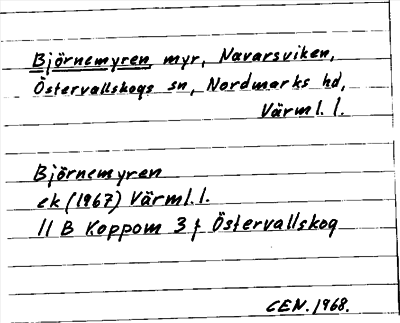 Björnemyren myr, Navarsviken,
Östervallskogs sn, Nordmarks hd,
Värml. l.
Björnemyren
ek (1967) Värml. l.
11 B Koppom 3 f Östervallskog
CEN. 1968.